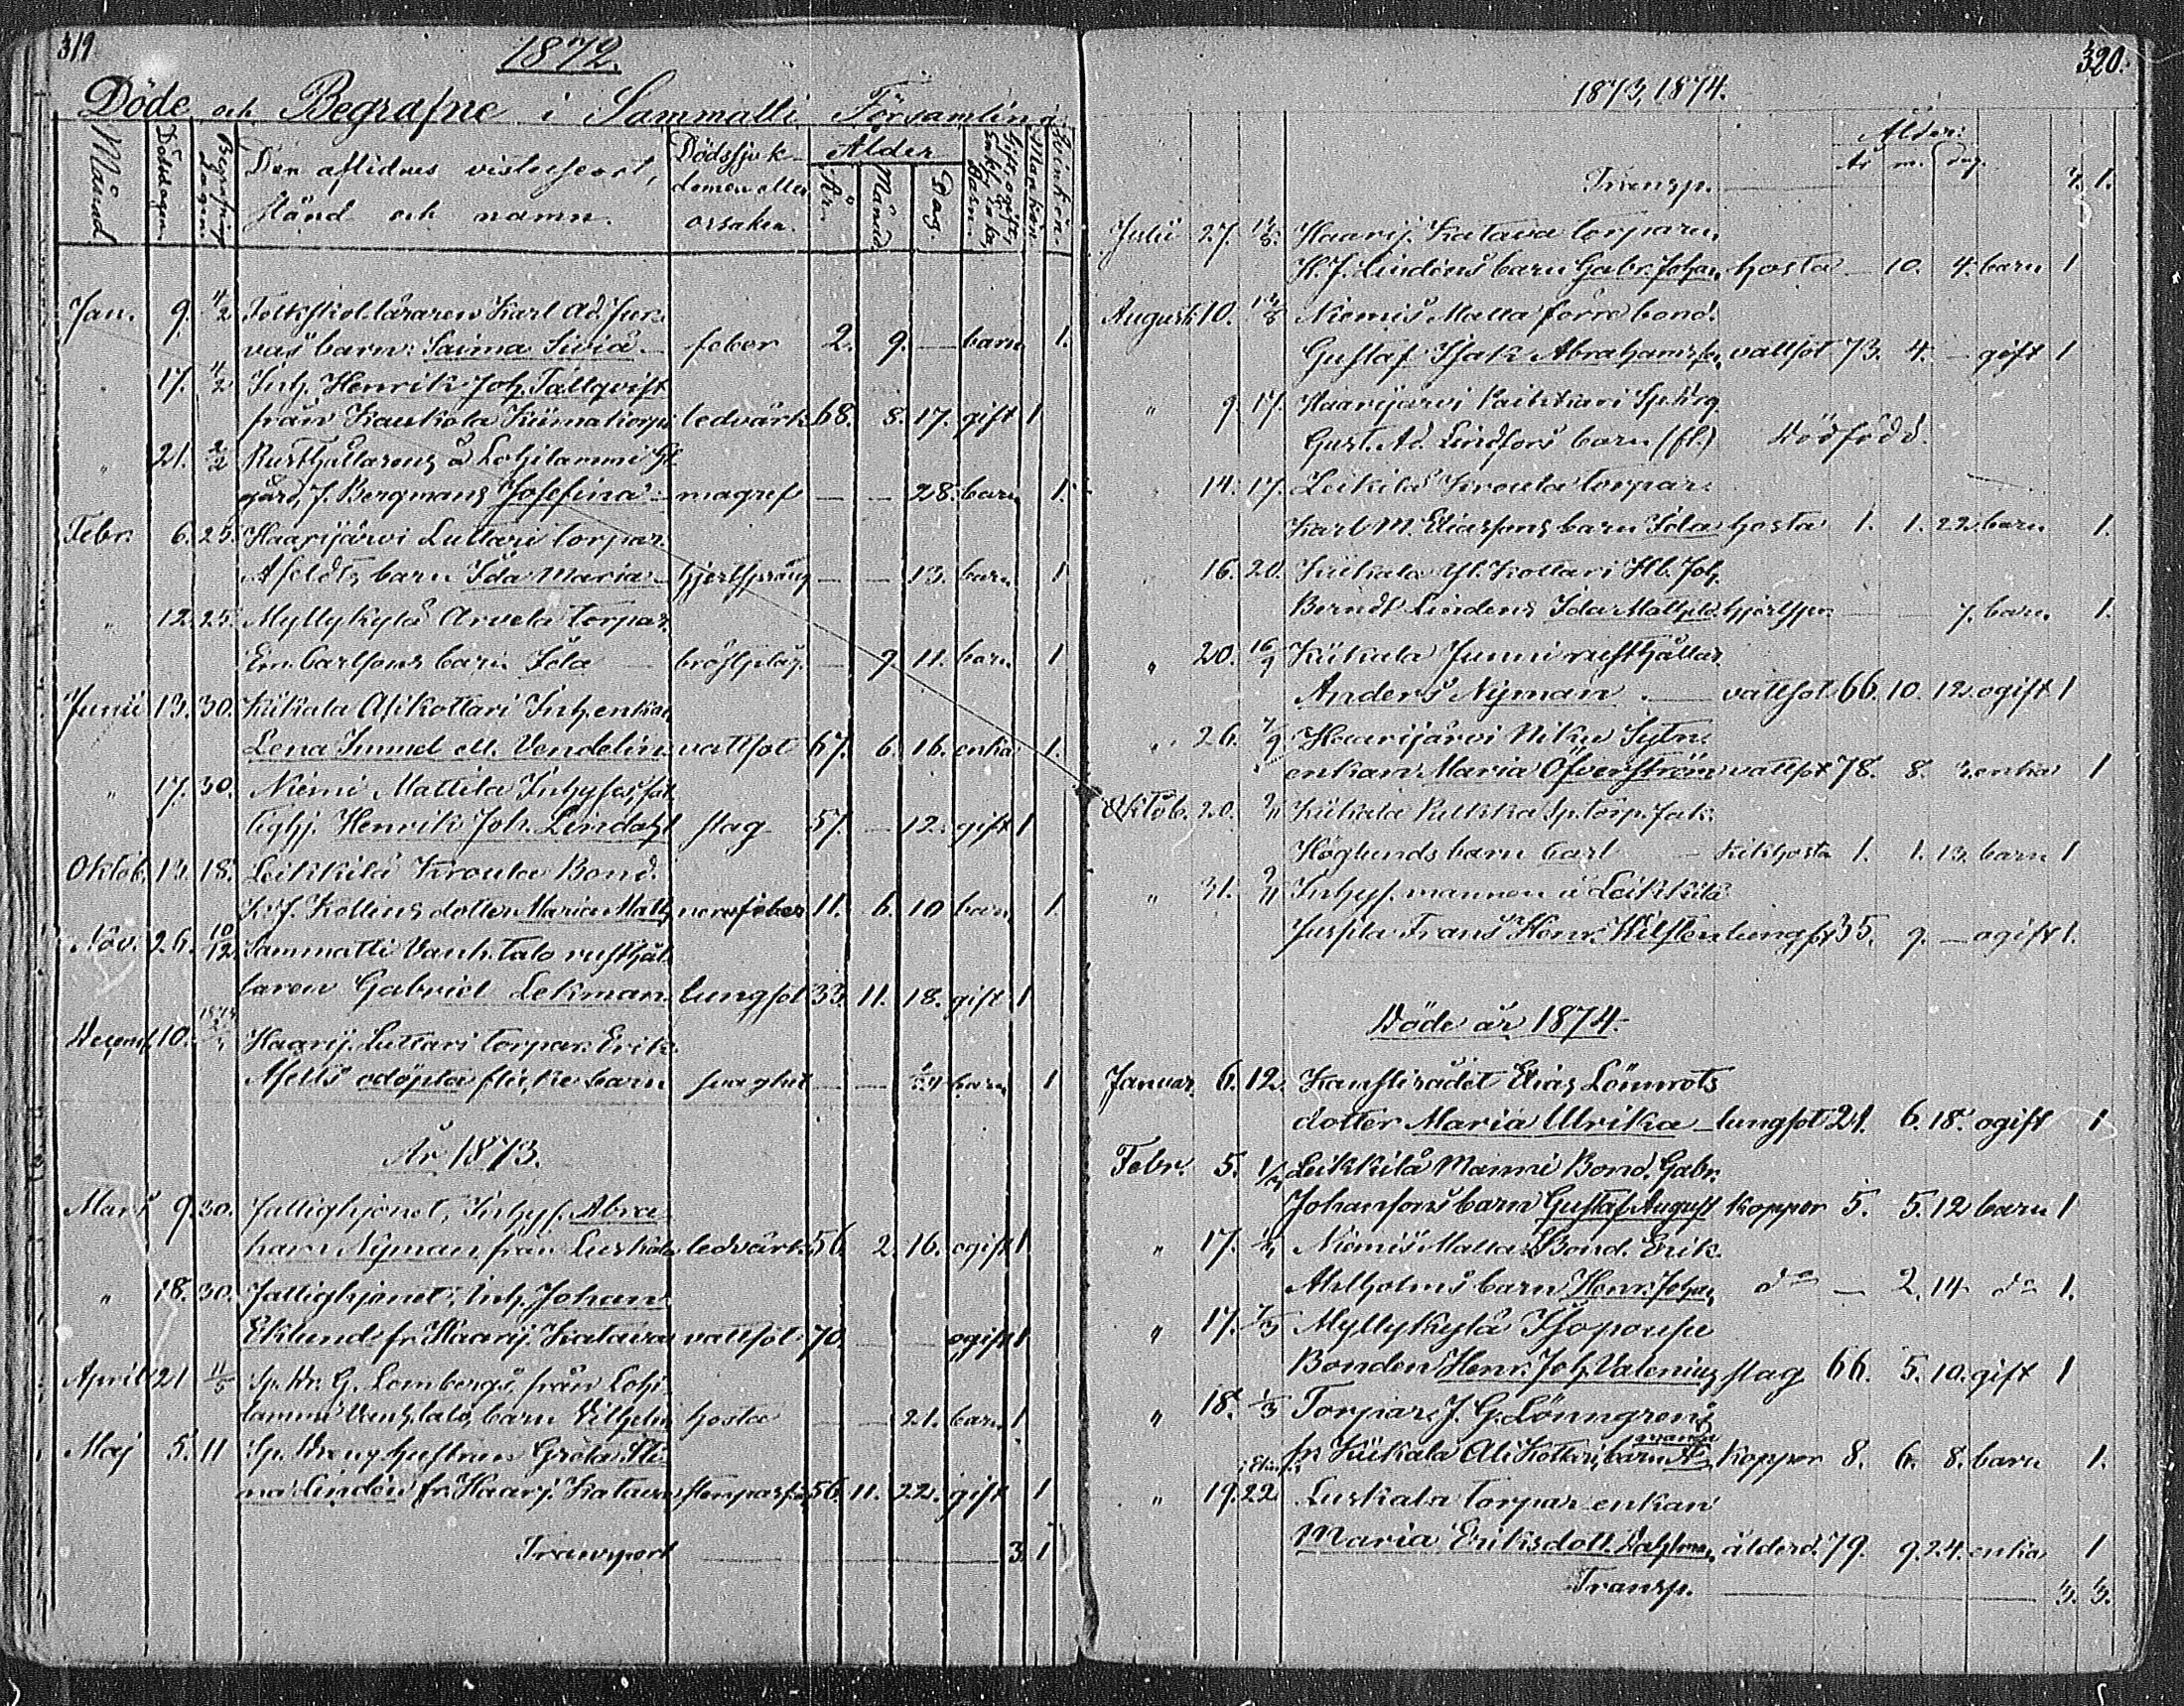 319
1872.
Döde och Begrafne i Sammatti Församling
Månad
Dödsdagen
Begrafningsdagen
Den aflidnes vistelseort,
stånd och namn.
Dödssjuk-
domen eller
orsaken.
Ålder
År.
Månad.
Dag.
Barn.
Mankön.
Qvinkön.
Jan. 9. 4/2 Folkskolläraren Karl Ad. Jur-
vas barn: Saima Sivia feber 2. 9. — barn 1.
" 17. 4/2 Inh. Henrik Joh. Tallqvist
från Kaukola Kiimakorpi ledvärk 68. 8. 17. gift 1
" 21. 2/2 Rusthållarens å Lohilammi
gård, J. Bergmans Josefina magref — — 28. barn 1.
Febr. 6. 25. Haarijärvi Luttari torpar.
Afeldts barn Ida Maria hjertsprång — — 13. barn 1
" 12. 25. Myllykylä Arvela torpar.
Em. Carlsons barn Ida bröstplåg. — 9 11. barn 1
Junii 13. 30. Kiikala Alikottari Inh. enkan
Lena Sunnd ell. Vendelin vattsot 67. 6. 16. enka 1.
" 17. 30. Niemi Mattila Inhyses, fat-
tighj. Henrik Joh. Lindahl slag 57. — 12. gift 1
Oktob. 13. 18. Leikkilä Krouta Bond.
K. J. Kollins dotter Maria Math. nervfeber 11. 6. 10 barn 1.
Nov. 26. 10/12. Sammatti Vanh. talo rusthål-
laren Gabriel Lekman. lungsot 33. 11. 18. gift 1
Decemb. 10. Haarij. Luttari torpar. Erik
Afelts odöpta flickebarn — — barn 1
År 1873.
Mars 9. 30. fattighjonet, Inhys. Abra-
ham Nyman från Luskala ledvärk 56. 2. 16. ogift 1.
" 18. 30. fattighjonet, inh. Johan
Eklund fr. Haarij. Katava vattsot 70. — — ogift 1
April 21 11/5 Sp. Dr. G. Lombergs från Lohi-
lammi Vanhtalo, barn Vilhelm hosta — — 21. barn 1.
Maj 5. 11 Sp. Drengs hustrun Greta Sti-
na Lindén fr. Haarj. Katava 56. 11. 22. gift 1
Transport 3. 1
320.
1873, 1874.
Ålder:
år m. dag.
Transp. 1.
Julii 27. Haarij. Katava torparen,
K. J. Lindéns barn Gabr. Johan hosta — 10. 4. barn 1
August. 10. Niemis Matta förre bond.
Gustaf Isak Abrahamsson, vattsot 73. 4. — gift 1
" 9. 17. Haarijärvi Paikkari Sp. Krg
Gust. Ad. Lindfors barn (fl.) dödfödd.
" 14. 17. Leikilä Krouta torpar.
Karl M. Eliassons barn Ida hosta 1. 1. 22 barn 1.
" 16. 20. Kiikala Yl. Kottari Joh.
Berndt Lindens Ida Mathild. hjertspr. — 7. barn. 1.
" 20. 16/9 Kiikala Junni rusthållar.
Anders Nyman. vattsot 66. 10. 12. ogift 1
" 26. 7/9 Haarijärvi Niku Sytn.
enkan Maria Öfverström vattsot 78. 8. 3. enka 1
Oktob. 20. 9/11 Kiikala Pukkka Sp. torp. Jak.
Höglunds barn Carl kikhosta 1. 1. 13. barn 1
" 31. 9/11 Inhys. mannen å Leikkilä
Juspla Frans Henr. Wilsten lungsot 35. 9. — ogift 1.
Döde år 1874.
Januar. 6. 12. Kanslirådet Elias Lönnrots
dotter Maria Ulrika lungsot 21. 6. 18. ogift 1
Febr. 5. 1/3 Leikkilä Manni Bond. Gabr.
Johansons barn Gustaf August koppor 5. 5. 12 barn 1
" 17. 1/3 Niemis Matta Bond. Erik
Ahlholms barn Henr. Johan do — 2. 14 do 1.
" 17. 1/3 Myllykylä Isopouse
Bonden Henr. Joh. Valenius slag 66. 5. 10. gift 1
" 18. 1/3 Torpar. J. G. Lönngrens
fr. Kiikala Ali Kottari, barn koppor 8. 6. 8. barn 1.
" 19. 22 Luskala torpar-enkan
Maria Eriksdott. Dahlman, ålderd. 79. 9. 24. enka 1
Transp. 3. 3.